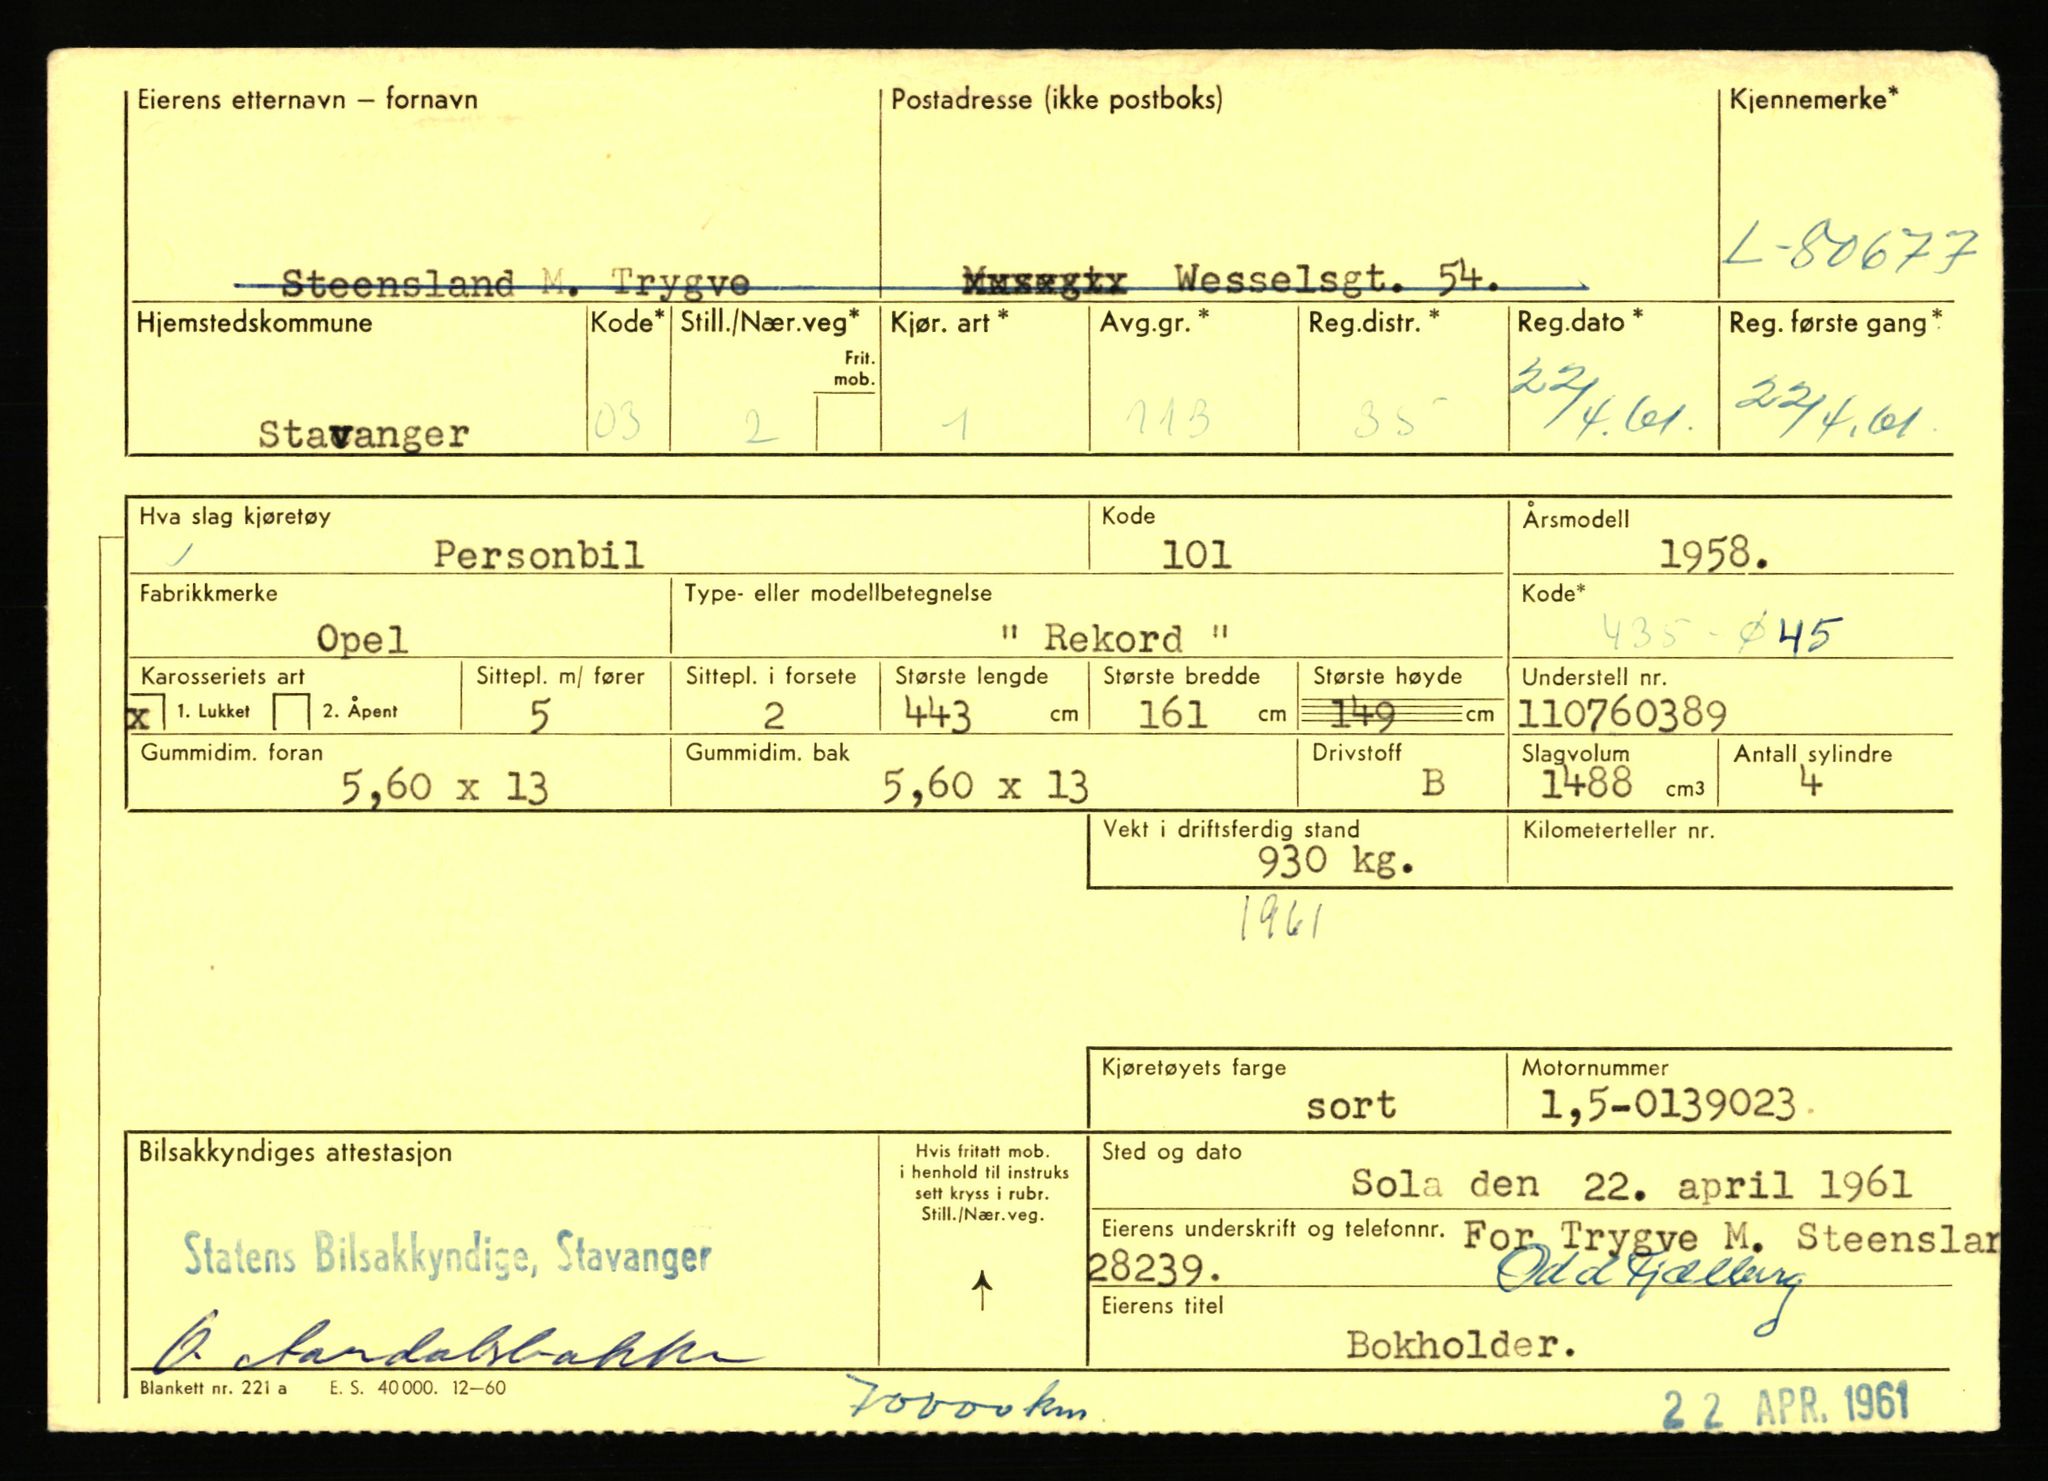 Eierens etternavn – fornavn
Postadresse (ikke postboks)
Kjennemerke*
L-80677
Steensland M. Trygve
Wesselsgt. 54.
Hjemstedskommune
Kode*
Still./Nær.veg*
Frit.
mob.
Kjør. art*
Avg.gr.*
Reg.distr.*
Reg.dato*
Reg. første gang*
Stavanger
03
2
1
113
35
22/4.61.
22/4.61.
Hva slag kjøretøy
Personbil
Kode
101
Årsmodell
1958.
Fabrikkmerke
Opel
Type- eller modellbetegnelse
" Rekord "
Kode*
435 - Ø45
Karosseriets art
x 1. Lukket 2. Åpent
Sittepl. m/ fører
5
Sittepl. i forsete
2
Største lengde
443 cm
Største bredde
161 cm
Største høyde
149 cm
Understell nr.
110760389
Gummidim. foran
5,60 x 13
Gummidim. bak
5,60 x 13
Drivstoff
B
Slagvolum
1488 cm3
Antall sylindre
4
Vekt i driftsferdig stand
930 kg.
Kilometerteller nr.
1961
Kjøretøyets farge
sort
Motornummer
1,5-0139023.
Bilsakkyndiges attestasjon
Statens Bilsakkyndige, Stavanger
Hvis fritatt mob.
i henhold til instruks
sett kryss i rubr.
Still./Nær.veg.
Sted og dato
Sola den 22. april 1961
Eierens underskrift og telefonnr.
For Trygve M. Steenslan
28239.
Odd Fjælberg
Eierens titel
Bokholder.
Blankett nr. 221 a E. S. 40 000. 12—60
70000 km
22 APR. 1961